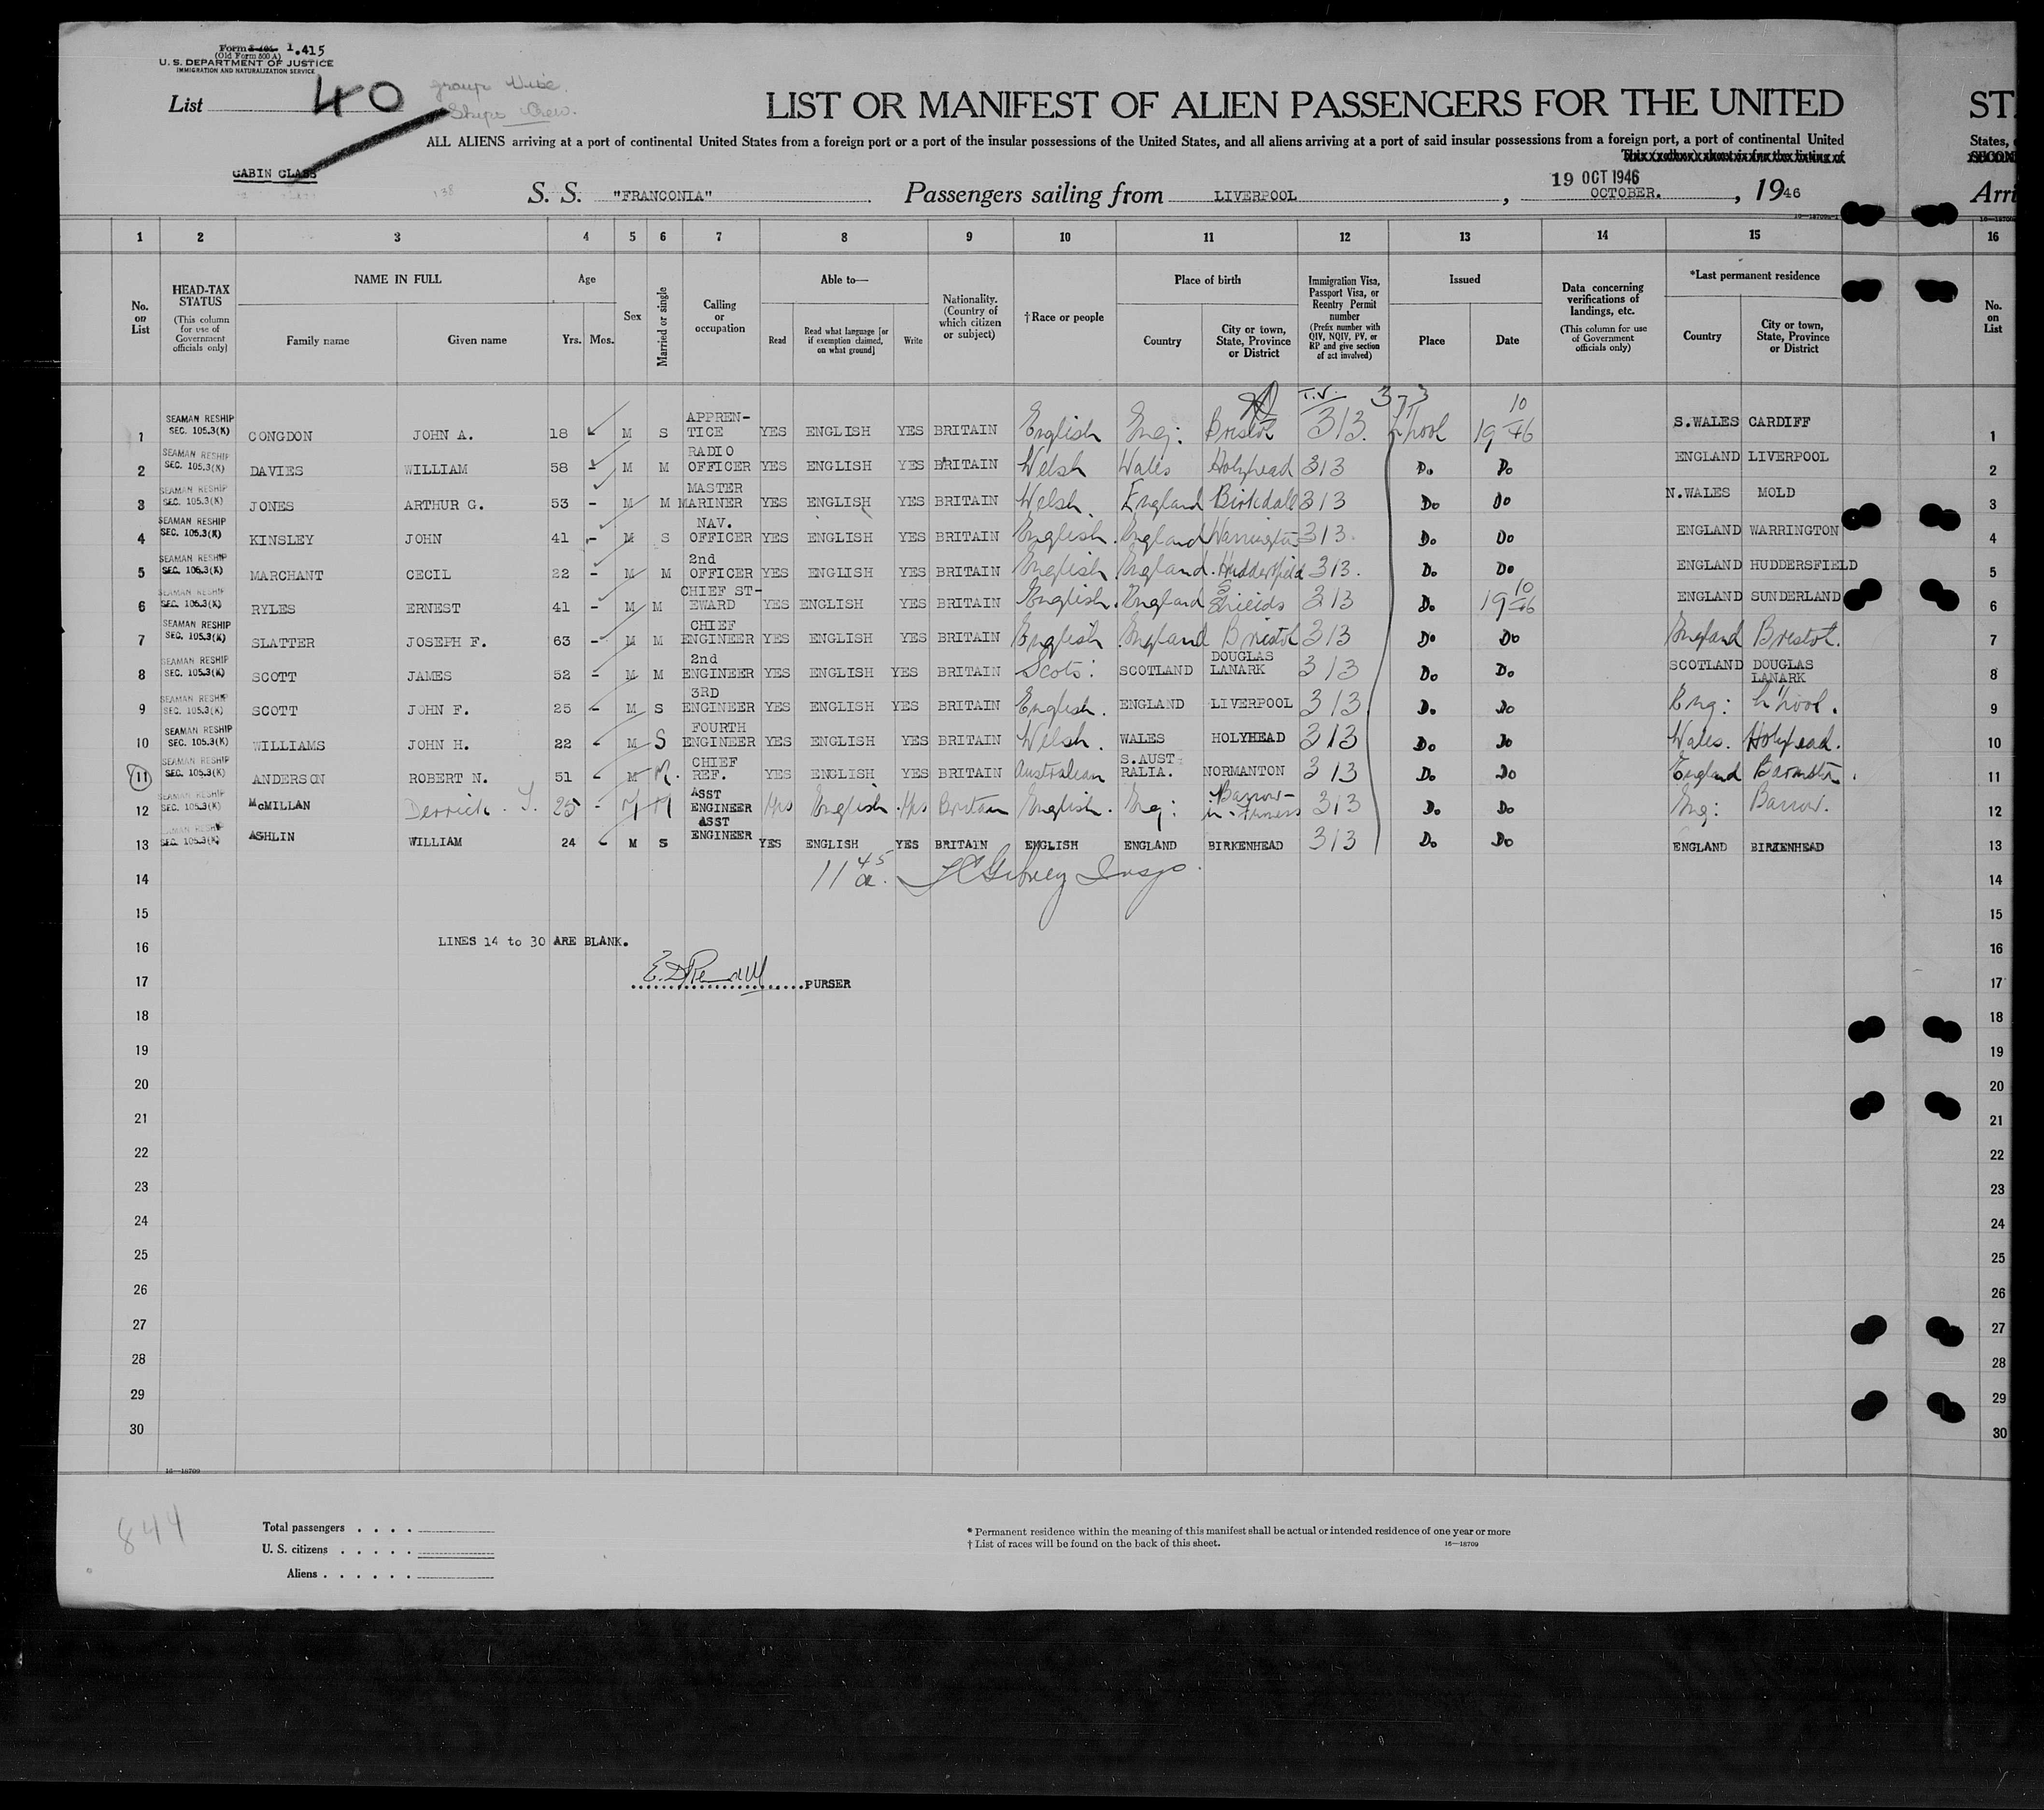 Form I-404 1.415
(Old Form 500 A)
U. S. DEPARTMENT OF JUSTICE
IMMIGRATION AND NATURALIZATION SERVICE
List 40
Ships Crew.
LIST OR MANIFEST OF ALIEN PASSENGERS FOR THE UNITED ST
ALL ALIENS arriving at a port of continental United States from a foreign port or a port of the insular possessions of the United States, and all aliens arriving at a port of said insular possessions from a foreign port, a port of continental United States,
CABIN CLASS
19 OCT 1946
S. S. "FRANCONIA" Passengers sailing from LIVERPOOL, OCTOBER., 1946 Arri
1 2 3 4 5 6 7 8 9 10 11 12 13 14 15 16
No. on List
HEAD-TAX STATUS (This column for use of Government officials only)
NAME IN FULL
Family name
Given name
Age
Yrs. Mos.
Sex
Married or single
Calling or occupation
Able to—
Read
Read what language [or if exemption claimed, on what ground]
Write
Nationality. (Country of which citizen or subject)
†Race or people
Place of birth
Country
City or town, State, Province or District
Immigration Visa, Passport Visa, or Reentry Permit number (Prefix number with QIV, NQIV, PV, or RP and give section of act involved)
Issued
Place
Date
Data concerning verifications of landings, etc. (This column for use of Government officials only)
*Last permanent residence
Country
City or town, State, Province or District
No. on List
T.V. 3-3
1 SEAMAN RESHIP SEC. 105.3(K) CONGDON JOHN A. 18 M S APPREN-TICE YES ENGLISH YES BRITAIN English Eng: Bristol 313. L'pool 19 10/46 S.WALES CARDIFF 1
2 SEAMAN RESHIP SEC. 105.3(K) DAVIES WILLIAM 58 M M RADIO OFFICER YES ENGLISH YES BRITAIN Welsh Wales Holyhead 313 Do Do ENGLAND LIVERPOOL 2
3 SEAMAN RESHIP SEC. 105.3(K) JONES ARTHUR G. 53 - M M MASTER MARINER YES ENGLISH YES BRITAIN Welsh. England Birkdale 313 Do Do N.WALES MOLD 3
4 SEAMAN RESHIP SEC. 105.3(K) KINSLEY JOHN 41 - M S NAV. OFFICER YES ENGLISH YES BRITAIN English. England Warrington 313. Do Do ENGLAND WARRINGTON 4
5 SEAMAN RESHIP SEC. 105.3(K) MARCHANT CECIL 22 - M M 2nd OFFICER YES ENGLISH YES BRITAIN English. England. Huddersfield 313. Do Do ENGLAND HUDDERSFIELD 5
6 SEAMAN RESHIP SEC. 105.3(K) RYLES ERNEST 41 - M M CHIEF ST-EWARD YES ENGLISH YES BRITAIN English. England S Shields 313 Do 19 10/46 ENGLAND SUNDERLAND 6
7 SEAMAN RESHIP SEC. 105.3(K) SLATTER JOSEPH F. 63 - M M CHIEF ENGINEER YES ENGLISH YES BRITAIN English. England Bristol 313 Do Do England Bristol. 7
8 SEAMAN RESHIP SEC. 105.3(K) SCOTT JAMES 52 - M M 2nd ENGINEER YES ENGLISH YES BRITAIN Scots: SCOTLAND DOUGLAS LANARK 313 Do Do SCOTLAND DOUGLAS LANARK 8
9 SEAMAN RESHIP SEC. 105.3(K) SCOTT JOHN F. 25 - M S 3RD ENGINEER YES ENGLISH YES BRITAIN English. ENGLAND LIVERPOOL 313 Do Do Eng: L'pool. 9
10 SEAMAN RESHIP SEC. 105.3(K) WILLIAMS JOHN H. 22 - M S FOURTH ENGINEER YES ENGLISH YES BRITAIN Welsh. WALES HOLYHEAD 313 Do Do Wales. Holyhead. 10
11 SEAMAN RESHIP SEC. 105.3(K) ANDERSON ROBERT N. 51 - M M. CHIEF REF. YES ENGLISH YES BRITAIN Australian S.AUST-RALIA. NORMANTON 313 Do Do England 11
12 SEAMAN RESHIP SEC. 105.3(K) McMILLAN Derrick. T. 25 - M M ASST ENGINEER Yes English. Yes Britain English. Eng: Barrow-in-Furness 313 Do Do Eng: Barrow. 12
13 SEAMAN RESHIP SEC. 105.3(K) ASHLIN WILLIAM 24 M S ASST ENGINEER YES ENGLISH YES BRITAIN ENGLISH ENGLAND BIRKENHEAD 313 Do Do ENGLAND BIRKENHEAD 13
14 11 45 a. Insp. 14
15 15
16 LINES 14 to 30 ARE BLANK. 16
17 PURSER 17
18 18
19 19
20 20
21 21
22 22
23 23
24 24
25 25
26 26
27 27
28 28
29 29
30 30
16—18709
844
Total passengers . . . .
U. S. citizens . . . . .
Aliens . . . . . .
* Permanent residence within the meaning of this manifest shall be actual or intended residence of one year or more
† List of races will be found on the back of this sheet.
16—18709